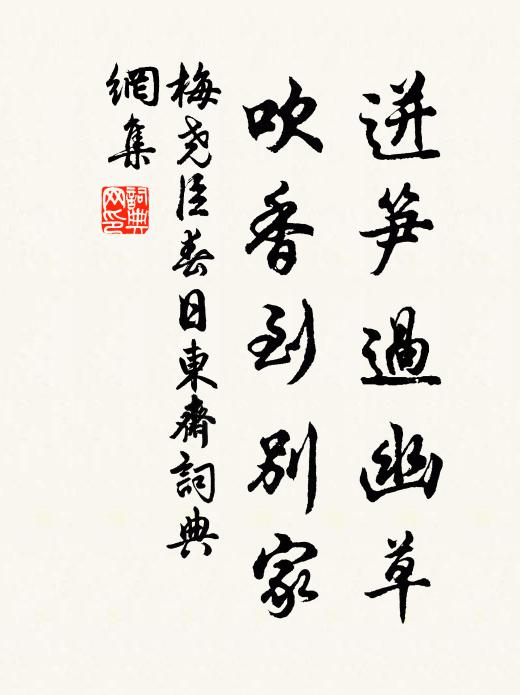 迸笋過幽草
吹香到别家
梅尧臣春日東齋詞典
網集
詞典
网印